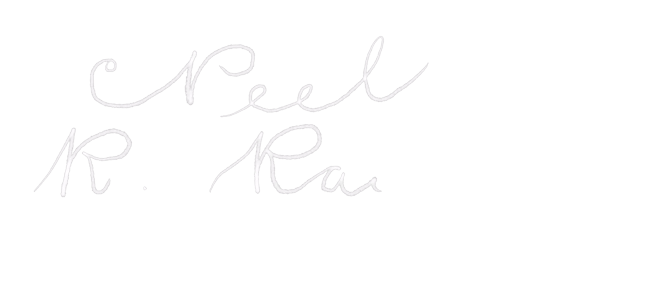 Peel
R. Rai